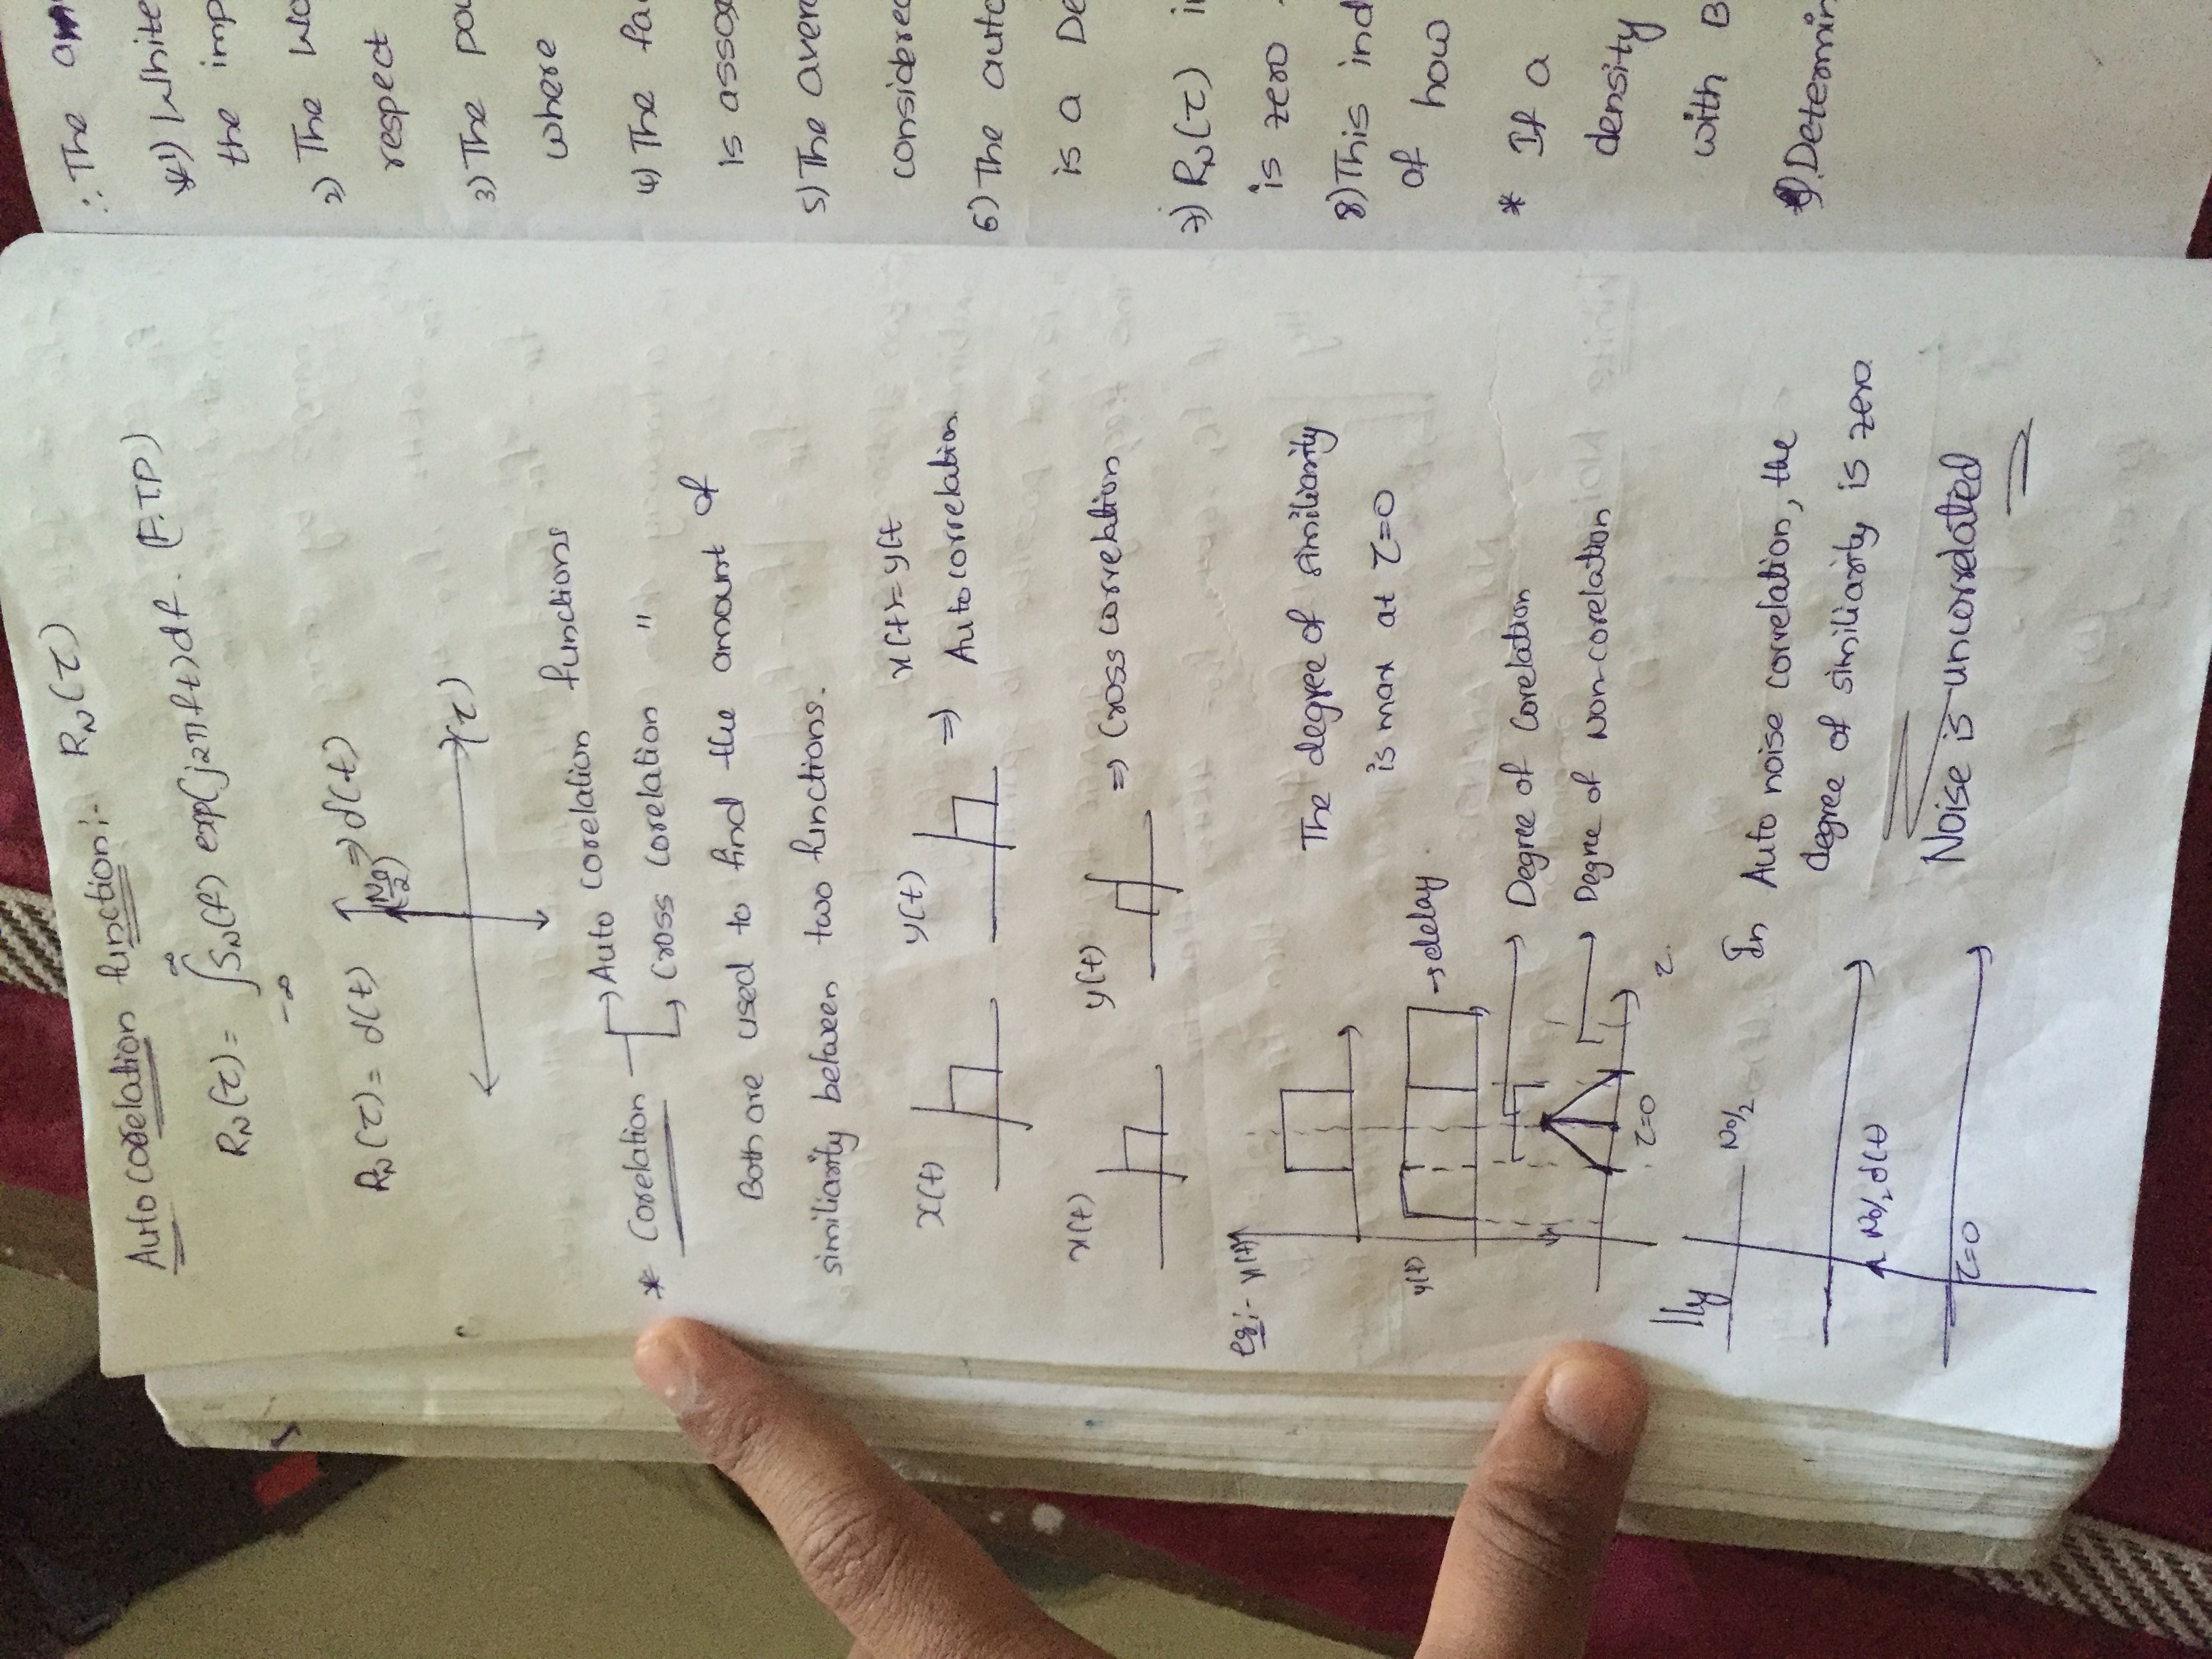 Auto corelation function:- RN(τ)
RN(τ) = ∫ SN(f) exp(j2πft)df. (F.T.P)
∞
-∞
RN(τ) = δ(t) (N0/2) ⇒ δ(t)
(τ)
* Corelation → Auto corelation functions
→ Cross corelation "
Both are used to find the amount of
similiarity between two functions.
x(t) y(t) ⇒ x(t)= y(t
Autocorrelation
x(t) y(t) ⇒ Cross correlation
eg:- x(t)
The degree of similiarity
is max at τ=0
y(t) → delay
→ Degree of Corelation
→ Degree of Non-corelation
τ=0
τ.
lly
N0/2
In Auto noise correlation, the
degree of similiarity is zero
N0/2 δ(t)
Noise is uncorrelated
τ=0
∴ The
*1) White
the imp
2) The
respect
3) The
where
4) The
is
5) The
considered
6) The auto
is a De
7) RN(τ)
is zero
8) This ind
of how
* If a
density
with B
Determin